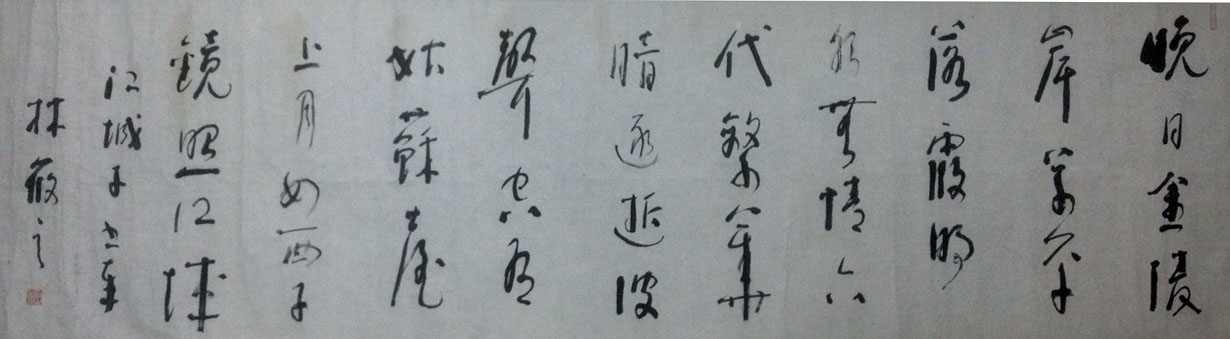 晚日金陵
岸草平
落霞明
水無情六
代繁華
暗逐逝波
聲空有
姑蘇臺
上月如西子
鏡照江城
江城子
林散之